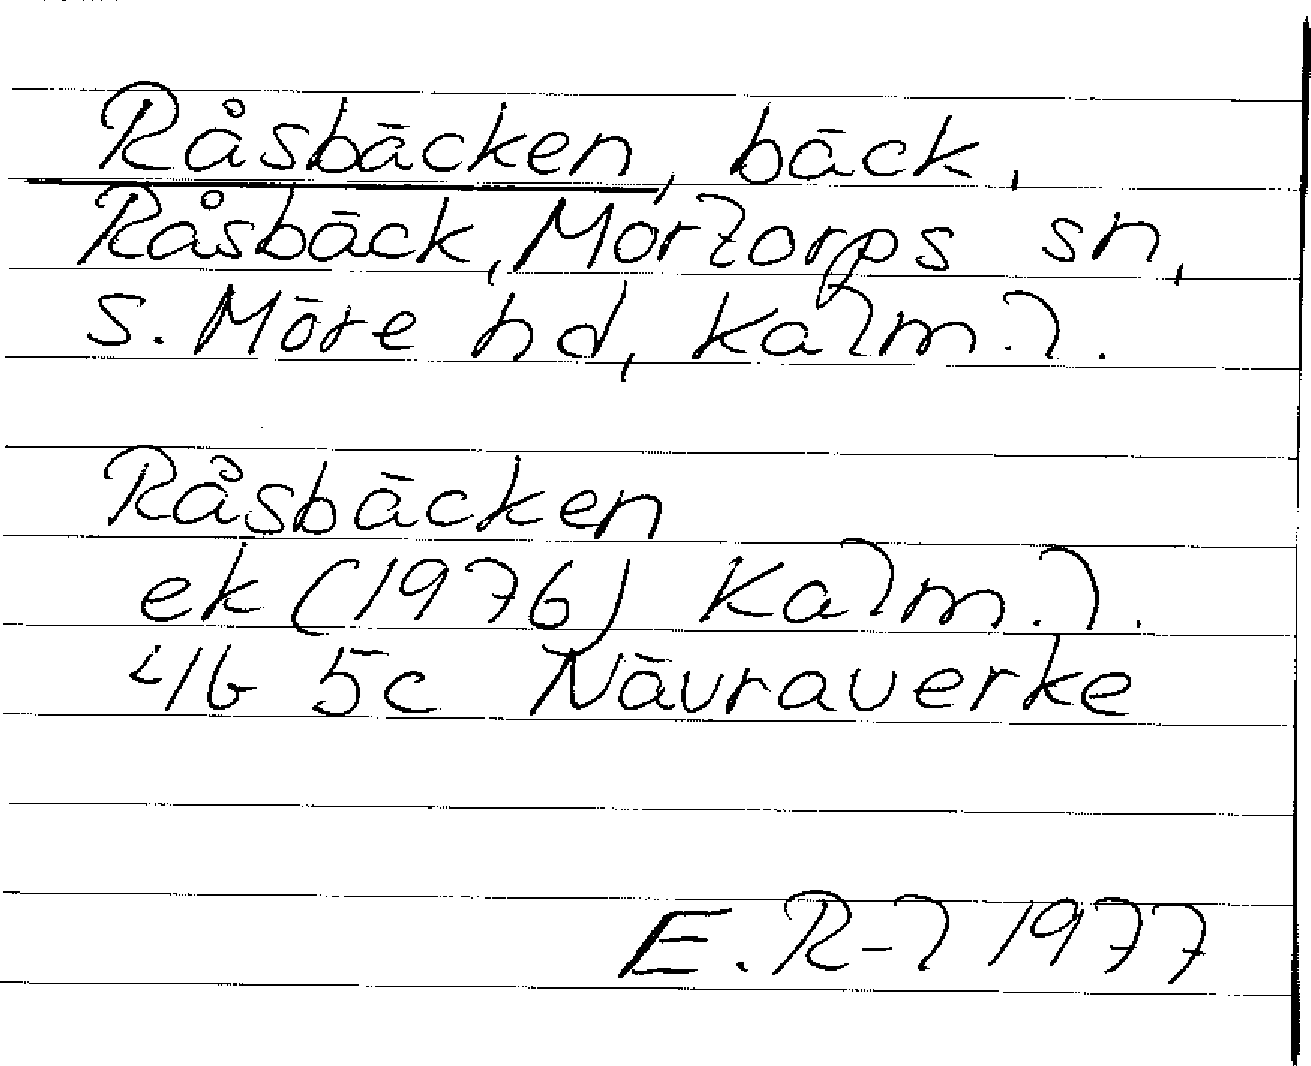 Råsbäcken, bäck,
Råsbäck, Mortorps sn,
S. Möre hd, Kalm. l.
Råsbäcken
ek (1976) Kalm. l.
4G 5c Nävraverke
E. R-l 1977